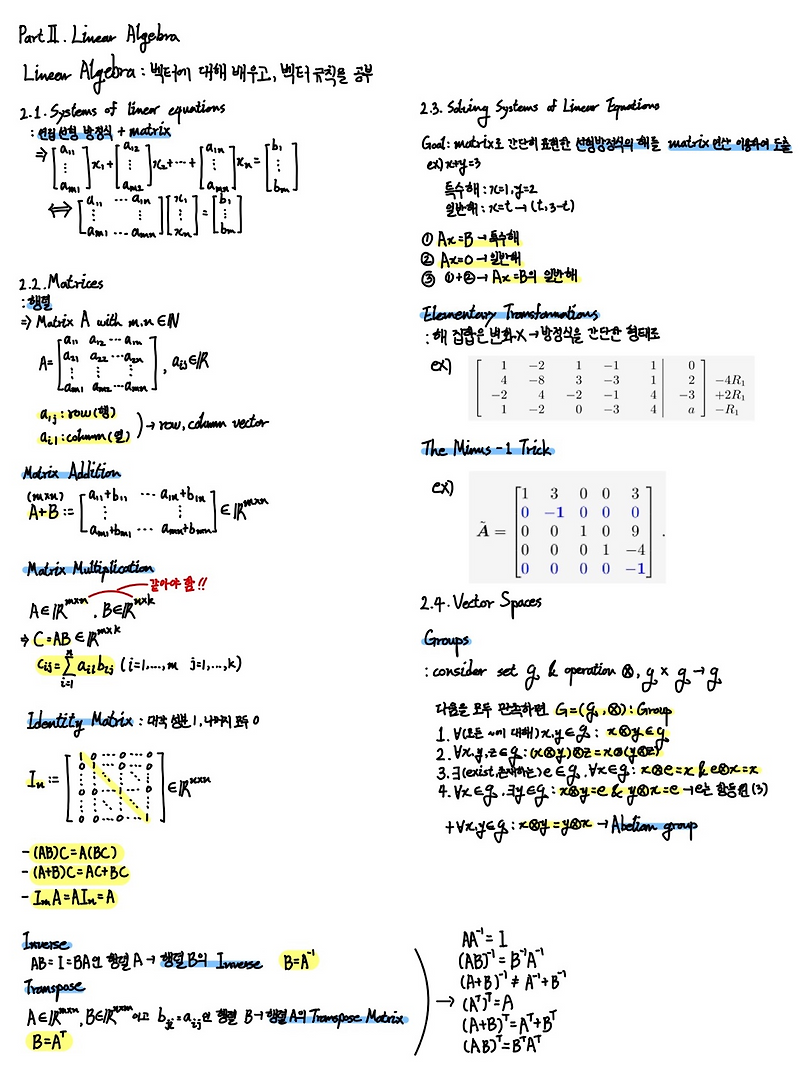 Part Ⅱ. Linear Algebra
Linear Algebra : 벡터에 대해 배우고, 벡터 규칙을 공부
2.1. Systems of linear equations
: 연립 선형 방정식 + matrix
⇒ [a₁₁ ⋮ aₘ₁] x₁ + [a₁₂ ⋮ aₘ₂] x₂ + ⋯ + [a₁ₙ ⋮ aₘₙ] xₙ = [b₁ ⋮ bₘ]
⇔ [a₁₁ ⋯ a₁ₙ ⋮ ⋮ aₘ₁ ⋯ aₘₙ] [x₁ ⋮ xₙ] = [b₁ ⋮ bₘ]
2.2. Matrices
: 행렬
⇒ Matrix A with m,n ∈ ℕ
A = [a₁₁ a₁₂ ⋯ a₁ₙ
a₂₁ a₂₂ ⋯ a₂ₙ
⋮ ⋮ ⋮
aₘ₁ aₘ₂ ⋯ aₘₙ] , aᵢⱼ ∈ ℝ
a₁ⱼ : row (행)
aᵢ₁ : column (열) ) → row, column vector
Matrix Addition
(m×n)
A+B := [a₁₁+b₁₁ ⋯ a₁ₙ+b₁ₙ ⋮ ⋮ aₘ₁+bₘ₁ ⋯ aₘₙ+bₘₙ] ∈ ℝᵐˣⁿ
Matrix Multiplication
같아야 함!!
A ∈ ℝᵐˣⁿ , B ∈ ℝⁿˣᵏ
⇒ C = AB ∈ ℝᵐˣᵏ
cᵢⱼ = Σⁿᵢ₌₁ aᵢₗ bₗⱼ (i=1,...,m j=1,...,k)
Identity Matrix : 대각 성분 1, 나머지 모두 0
Iₙ := [1 0 ⋯ 0 ⋯ 0
0 1 ⋯ 0 ⋯ 0
⋮ ⋮ ⋱ ⋮ ⋱ ⋮
0 0 ⋯ 1 ⋯ 0
⋮ ⋮ ⋱ ⋮ ⋱ ⋮
0 0 ⋯ 0 ⋯ 1] ∈ ℝⁿˣⁿ
- (AB)C = A(BC)
- (A+B)C = AC+BC
- IₘA = AIₙ = A
Inverse
AB = I = BA인 행렬 A → 행렬 B의 Inverse B = A⁻¹
Transpose
A ∈ ℝᵐˣⁿ, B ∈ ℝⁿˣᵐ이고 bⱼᵢ = aᵢⱼ인 행렬 B → 행렬 A의 Transpose Matrix
B = Aᵀ
→ AA⁻¹ = I
(AB)⁻¹ = B⁻¹A⁻¹
(A+B)⁻¹ ≠ A⁻¹+B⁻¹
(Aᵀ)ᵀ = A
(A+B)ᵀ = Aᵀ+Bᵀ
(AB)ᵀ = BᵀAᵀ
2.3. Solving Systems of Linear Equations
Goal : matrix로 간단히 표현한 선형방정식의 해를 matrix 연산 이용하여 도출
ex) x+y=3
특수해 : x=1, y=2
일반해 : x=t → (t, 3-t)
① Ax = B → 특수해
② Ax = 0 → 일반해
③ ①+② → Ax = B의 일반해
Elementary Transformations
: 해 집합은 변화 X → 방정식을 간단한 형태로
ex) [1 −2 1 −1 1 | 0]
[4 −8 3 −3 1 | 2] −4R₁
[−2 4 −2 −1 4 | −3] +2R₁
[1 −2 0 −3 4 | a] −R₁
The Minus -1 Trick
ex) Ã = [1 3 0 0 3
0 −1 0 0 0
0 0 1 0 9
0 0 0 1 −4
0 0 0 0 −1] .
2.4. Vector Spaces
Groups
: consider set g & operation ⊗, g × g → g
다음을 모두 만족하면 G = (g, ⊗) : Group
1. ∀(모든 ~에 대해) x,y ∈ g : x⊗y ∈ g
2. ∀x,y,z ∈ g : (x⊗y)⊗z = x⊗(y⊗z)
3. ∃(exist, 존재하는) e ∈ g, ∀x ∈ g : x⊗e = x & e⊗x = x
4. ∀x ∈ g, ∃y ∈ g : x⊗y = e & y⊗x = e → e는 항등원 (3)
+ ∀x,y ∈ g : x⊗y = y⊗x → Abelian group